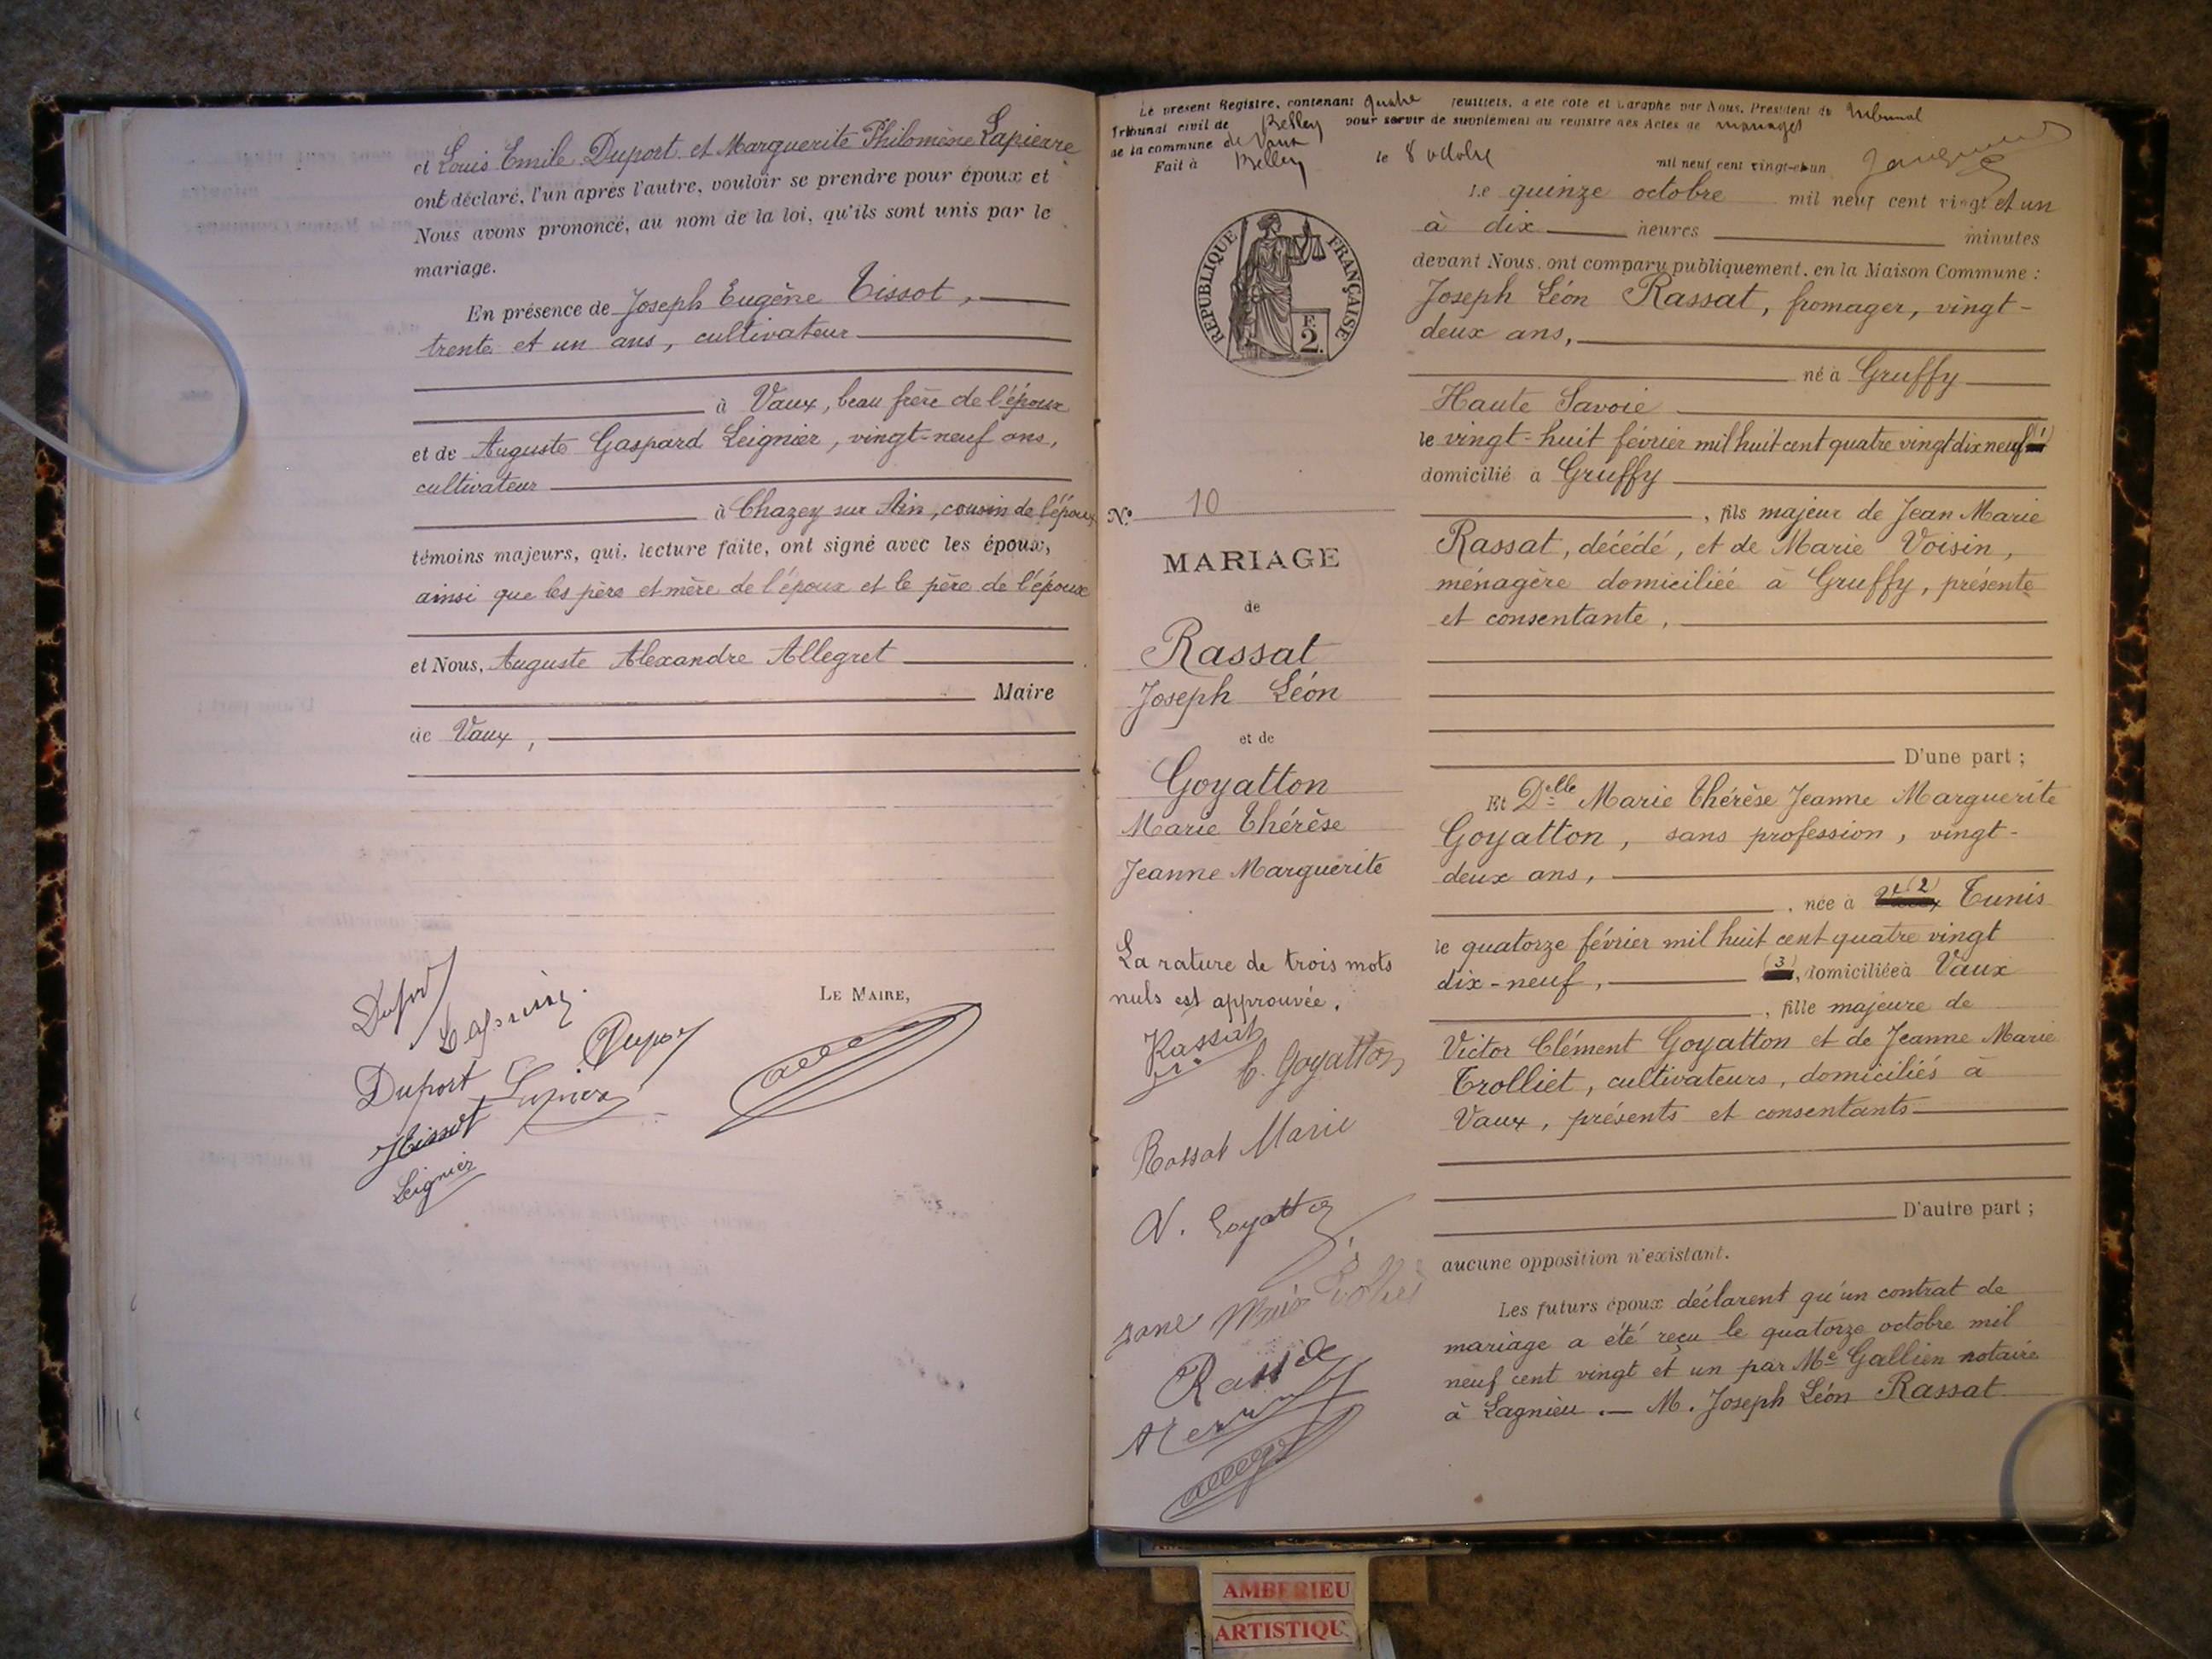 et Louis Emile Duport et Marguerite Philomène Lapierre
ont déclaré, l'un après l'autre, vouloir se prendre pour époux et
Nous avons prononcé, au nom de la loi, qu'ils sont unis par le
mariage.
En présence de Joseph Eugène Tissot,
trente et un ans, cultivateur
à Vaux, beau frère de l'époux
et de Auguste Gaspard Leignier, vingt-neuf ans,
cultivateur
à Chazey sur Ain, cousin de l'époux
témoins majeurs, qui, lecture faite, ont signé avec les époux,
ainsi que les père et mère de l'époux et le père de l'épouse
et Nous, Auguste Alexandre Allegret
Maire
de Vaux,
LE MAIRE,
Duport
Dupor
Duport
Tissot
Leignier
Le présent Registre, contenant quatre feuillets, a été coté et paraphé par Nous, Président du tribunal
Tribunal civil de Belley pour servir de supplément au registre des Actes de mariages
de la commune de Vaux
Fait à Belley le 8 octobre mil neuf cent vingt-et-un
RÉPUBLIQUE FRANÇAISE
F.
2.
N° 10
MARIAGE
de
Rassat
Joseph Léon
et de
Goyatton
Marie Thérèse
Jeanne Marguerite
La rature de trois mots
nuls est approuvée.
Rassat
C. Goyatton
Rassat Marie
V. Goyatton
Le quinze octobre mil neuf cent vingt et un
à dix heures minutes
devant Nous, ont comparu publiquement, en la Maison Commune :
Joseph Léon Rassat, fromager, vingt-
deux ans,
né à Gruffy
Haute Savoie
le vingt-huit février mil huit cent quatre vingt dix neuf
domicilié à Gruffy
, fils majeur de Jean Marie
Rassat, décédé, et de Marie Voisin,
ménagère domiciliée à Gruffy, présente
et consentante,
D'une part ;
Et Delle Marie Thérèse Jeanne Marguerite
Goyatton, sans profession, vingt-
deux ans,
, née à (2) Tunis
le quatorze février mil huit cent quatre vingt
dix-neuf, (3), domiciliée à Vaux
, fille majeure de
Victor Clément Goyatton et de Jeanne Marie
Trolliet, cultivateurs, domiciliés à
Vaux, présents et consentants
D'autre part ;
aucune opposition n'existant.
Les futurs époux déclarent qu'un contrat de
mariage a été reçu le quatorze octobre mil
neuf cent vingt et un par Me Gallien notaire
à Lagnieu. — M. Joseph Léon Rassat
AMBERIEU
ARTISTIQU